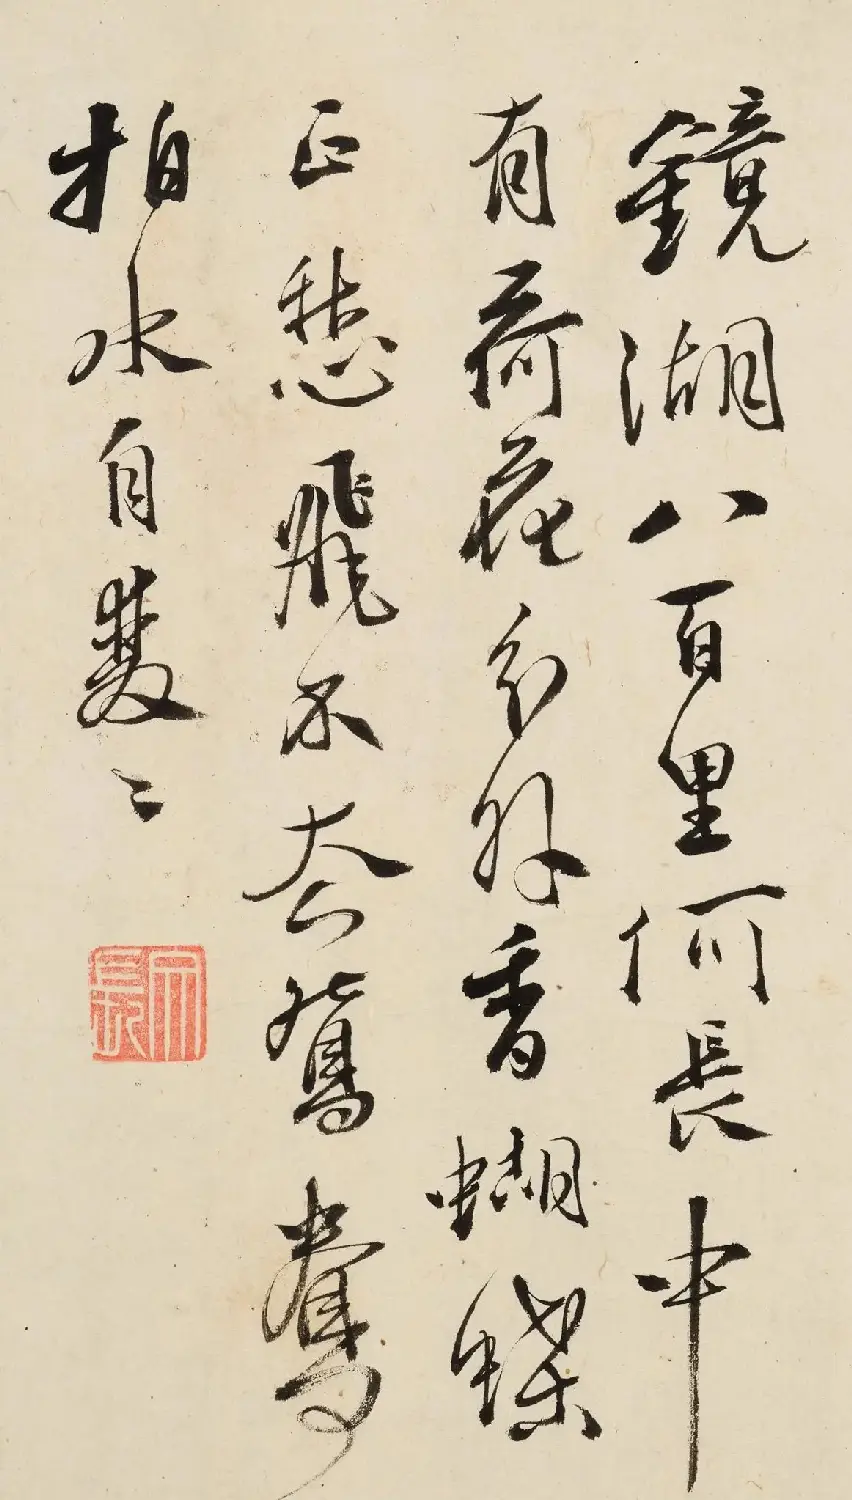 鏡湖八百里何長中
有荷花分外香蝴蝶
正愁飛不去鴛鴦
拍水自雙〻
文長